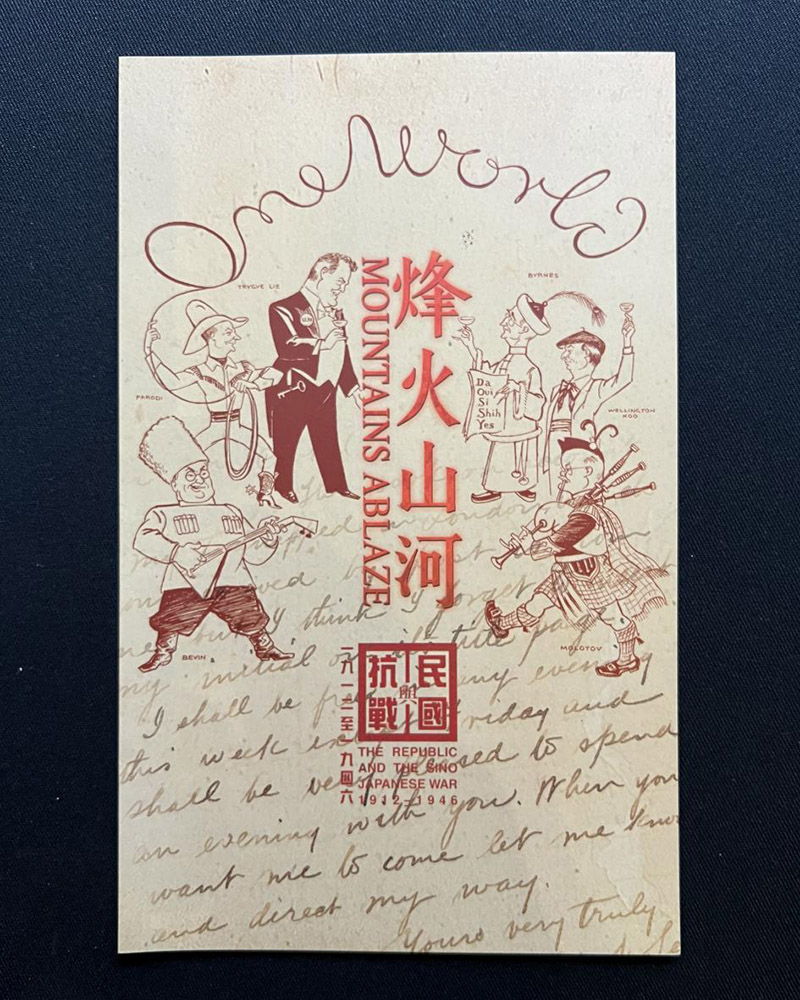 One World
TRYGVE LIE
PARODI
BYRNES
WELLINGTON KOO
Da
Oui
Si
Shih
Yes
烽火山河
MOUNTAINS ABLAZE
BEVIN
MOLOTOV
民國與抗戰
一九一二至一九四六
THE REPUBLIC
AND THE SINO
JAPANESE WAR
1912-1946
I think I forget
my initial on the title page
I shall be free any evening
this week Friday and
shall be very pleased to spend
an evening with you. When you
want me to come let me know
and direct my way.
Yours very truly